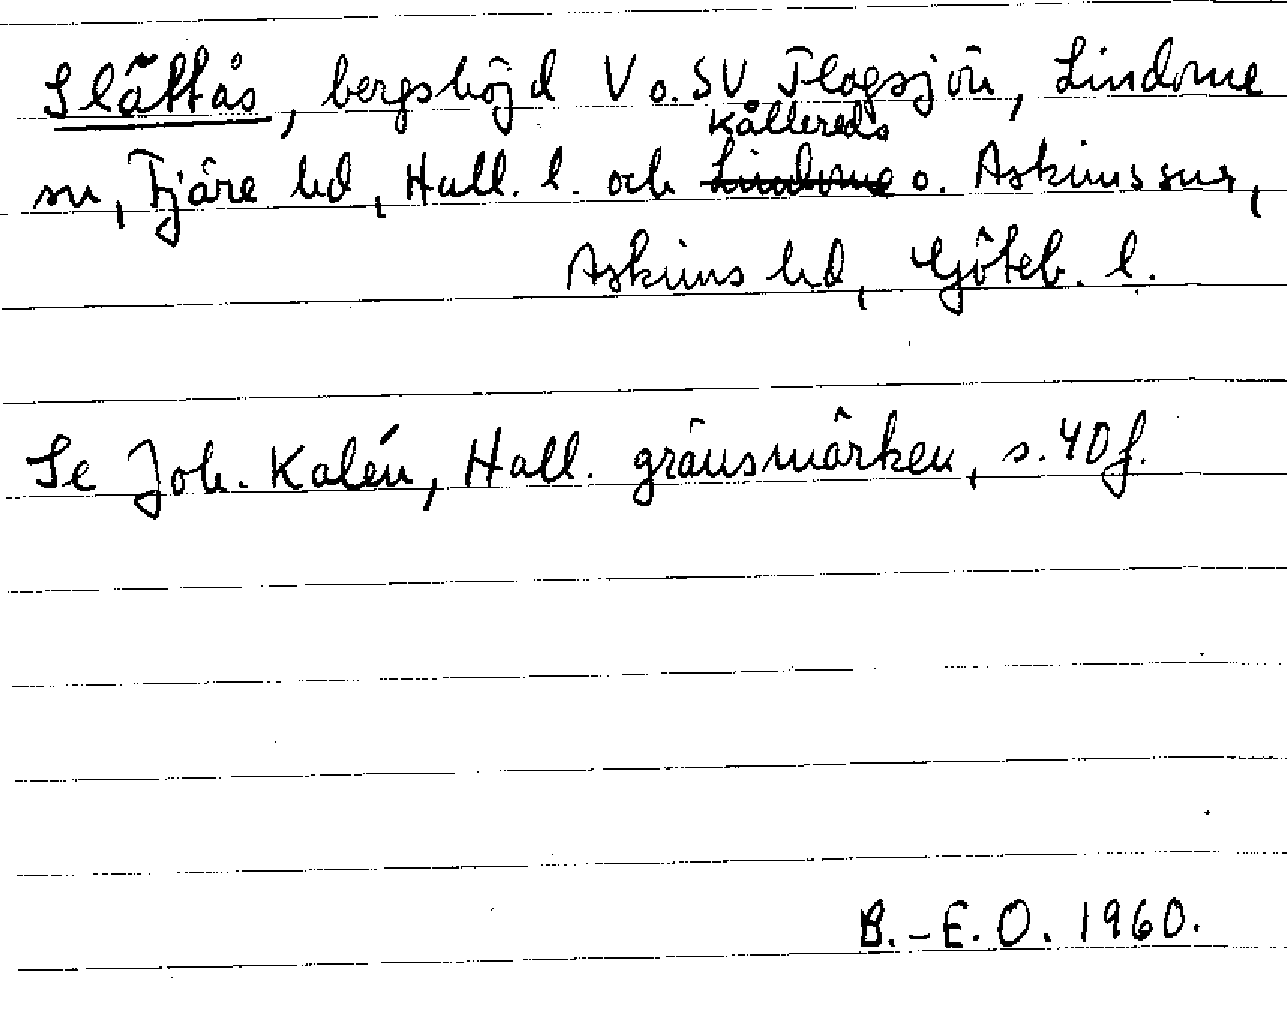 Slättås, bergshöjd V o. SV Flagsjön, Lindome
Kållereds
sn, Fjäre hd, Hall. l. och Lindome o. Askims snr,
Askims hd, Göteb. l.
Se Joh. Kalén, Hall. gränsmärken, s. 40 f.
B.-E.O. 1960.